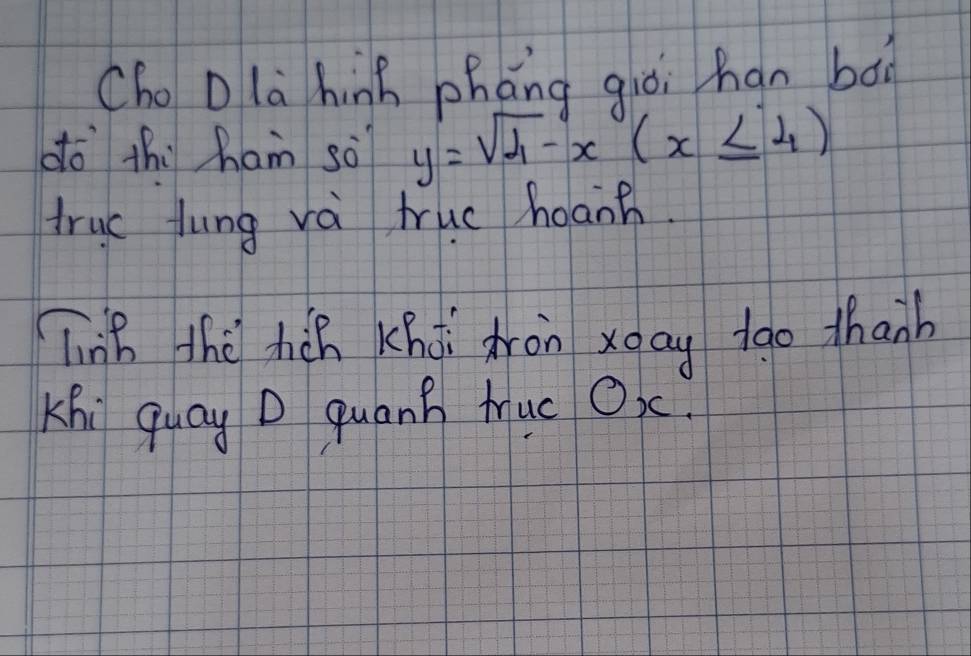 Cho D là hình phẳng giới hạn bởi
đồ thị hàm số y = √4 - x (x ≤ 4)
trục tung và trục hoành.
Tính thể tích khối tròn xoay tạo thành
khi quay D quanh trục Ox.